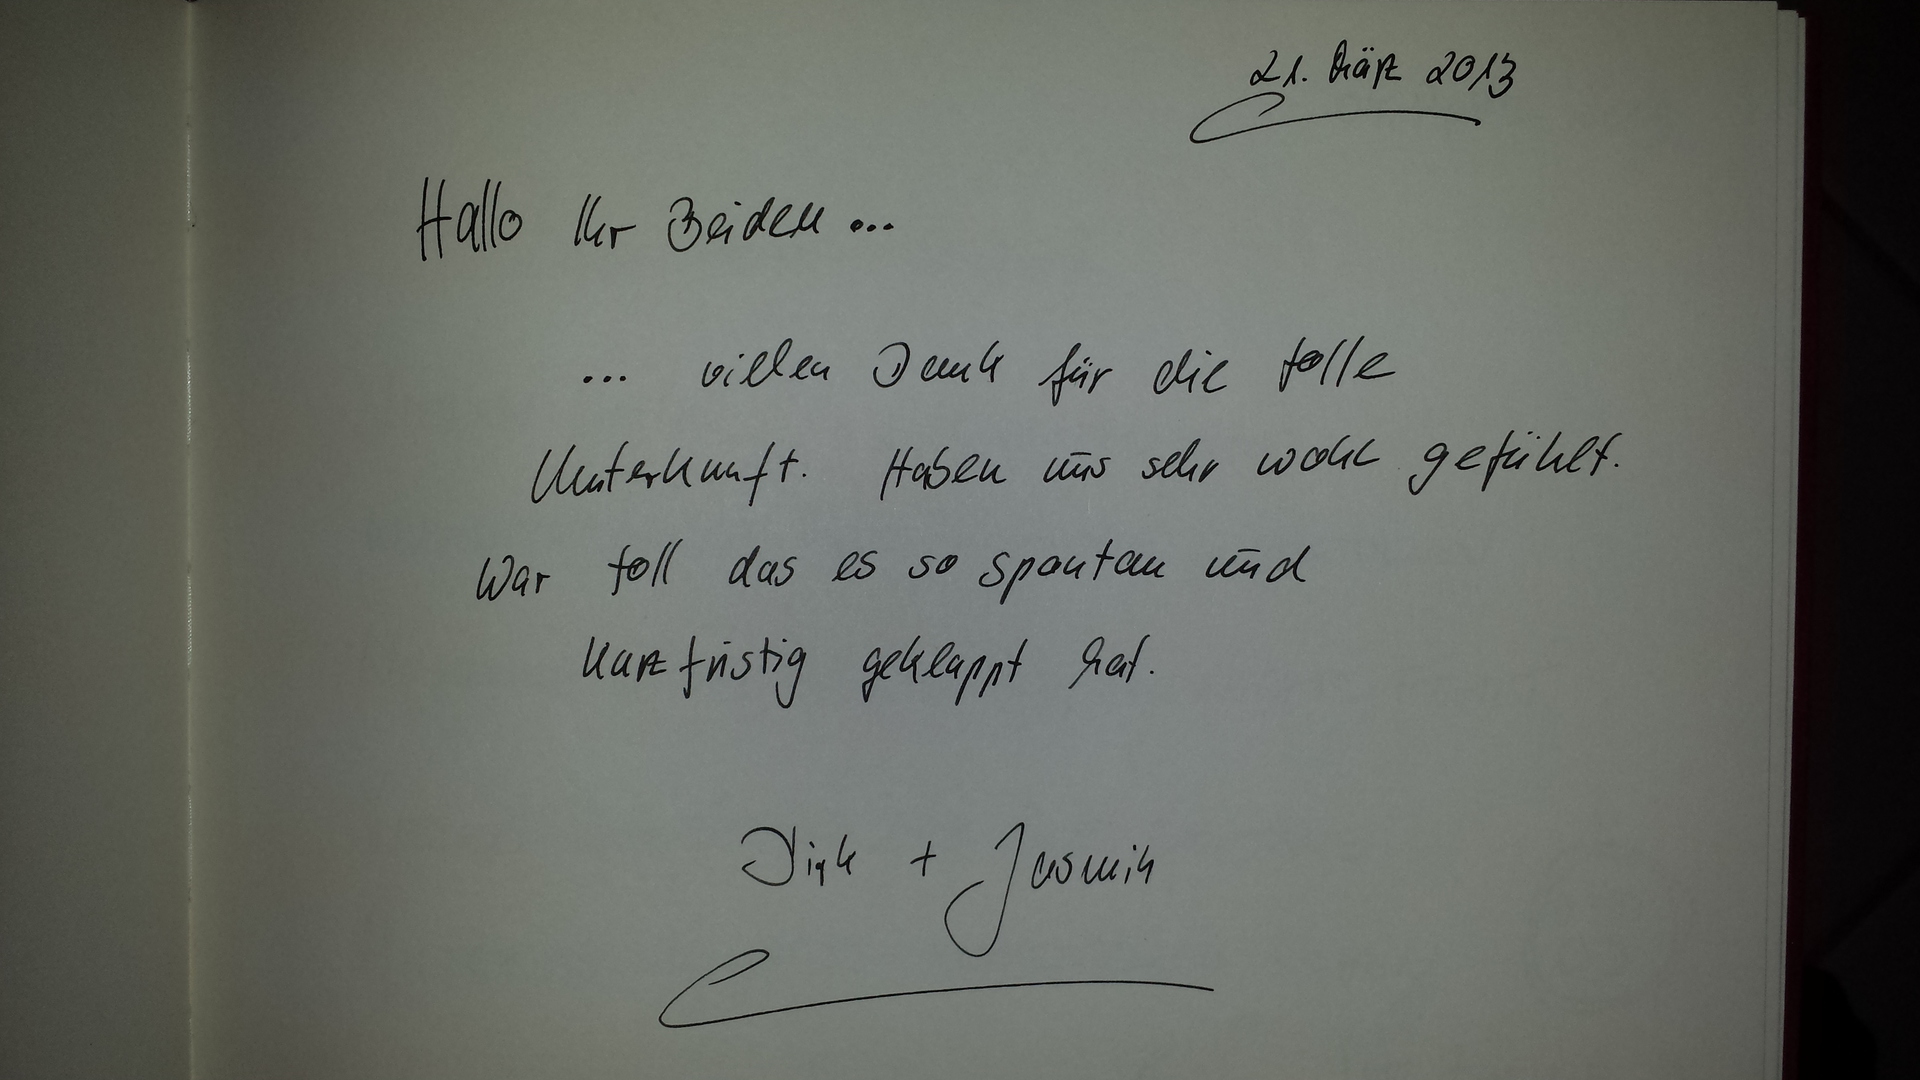 21. März 2013
Hallo Ihr Beiden...
... vielen Dank für die tolle
Unterkunft. Haben uns sehr wohl gefühlt.
War toll das es so spontan und
kurzfristig geklappt hat.
Dirk + Jasmin